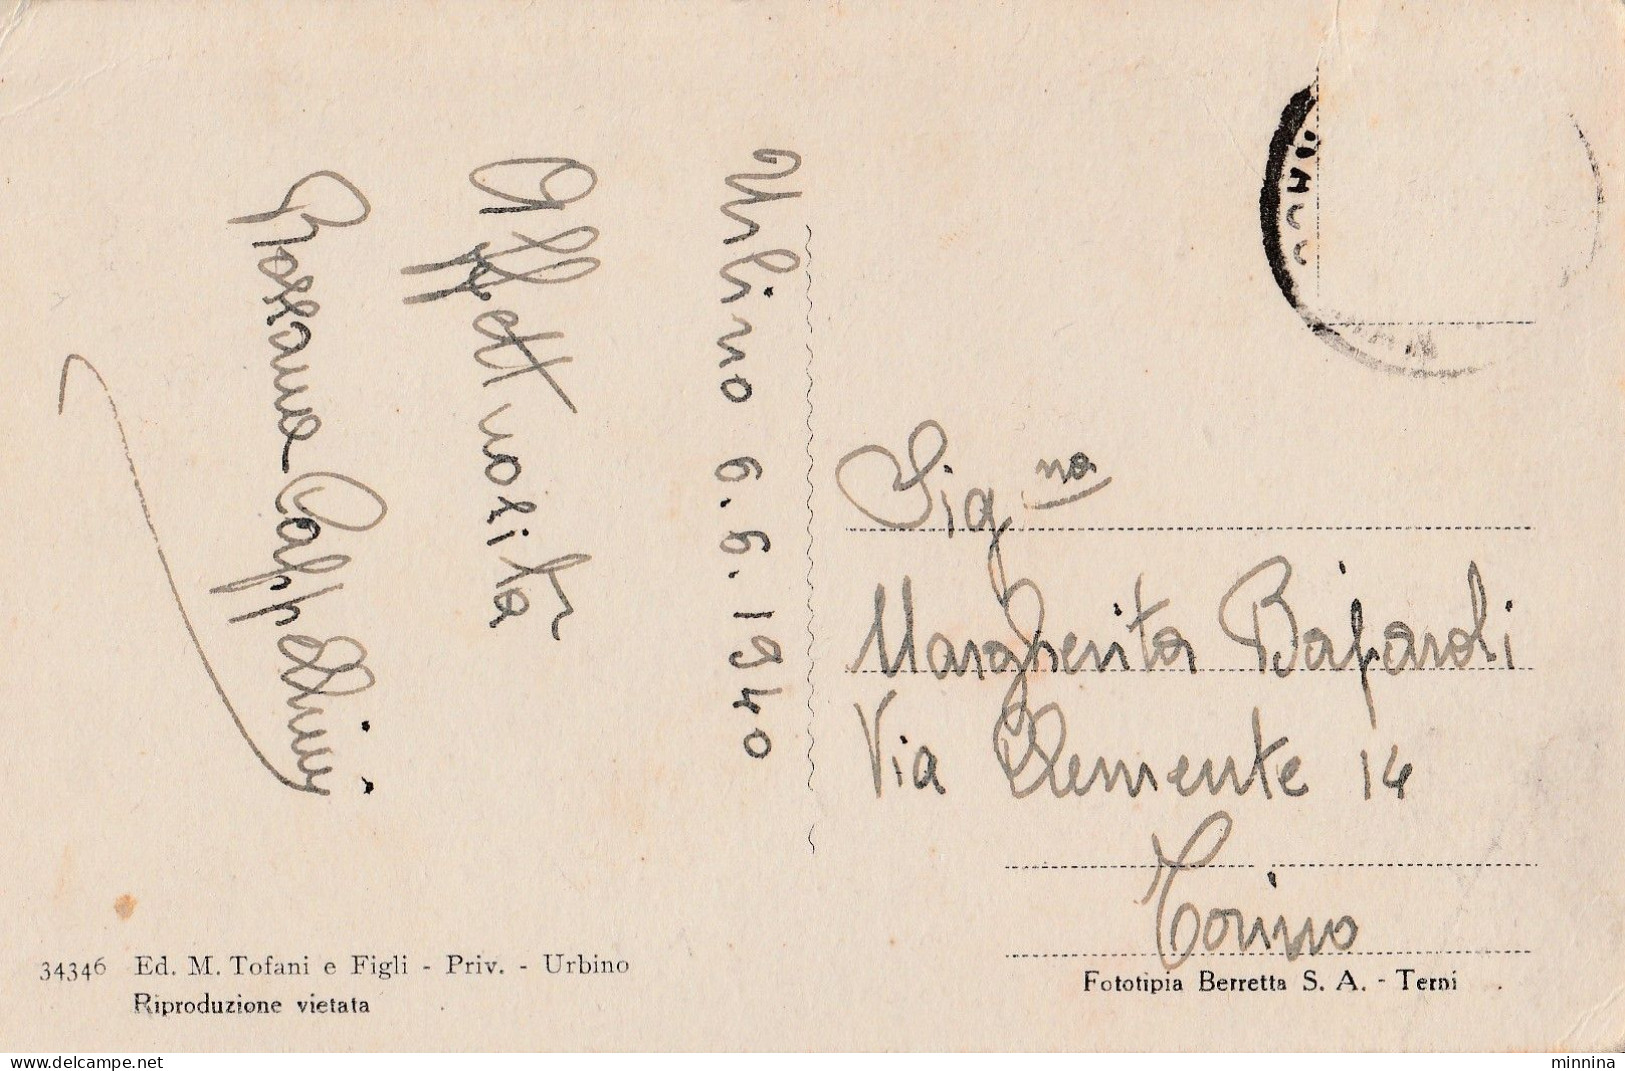 Urbino 6.6.1940
Affettuosità
Rossana Cappellini
Sig na
Margherita
Via Clemente 14
Torino
34346 Ed. M. Tofani e Figli - Priv. - Urbino
Riproduzione vietata
Fototipia Berretta S. A. - Terni
www.delcampe.net
minnina